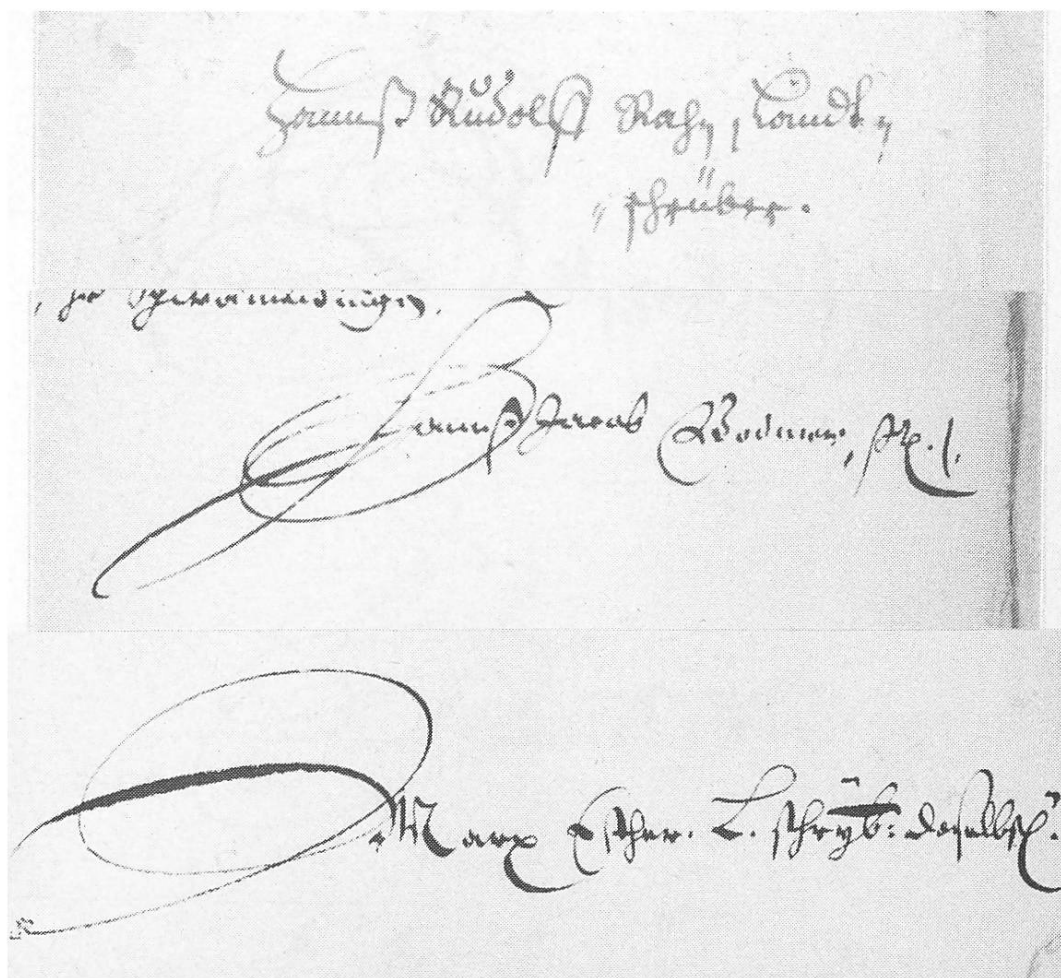 Hannß Rudolff Rahn, Landt„
„schrüber.
Hannß Jacob Bodmer,
Marx Escher. L. schryb: daselbst.